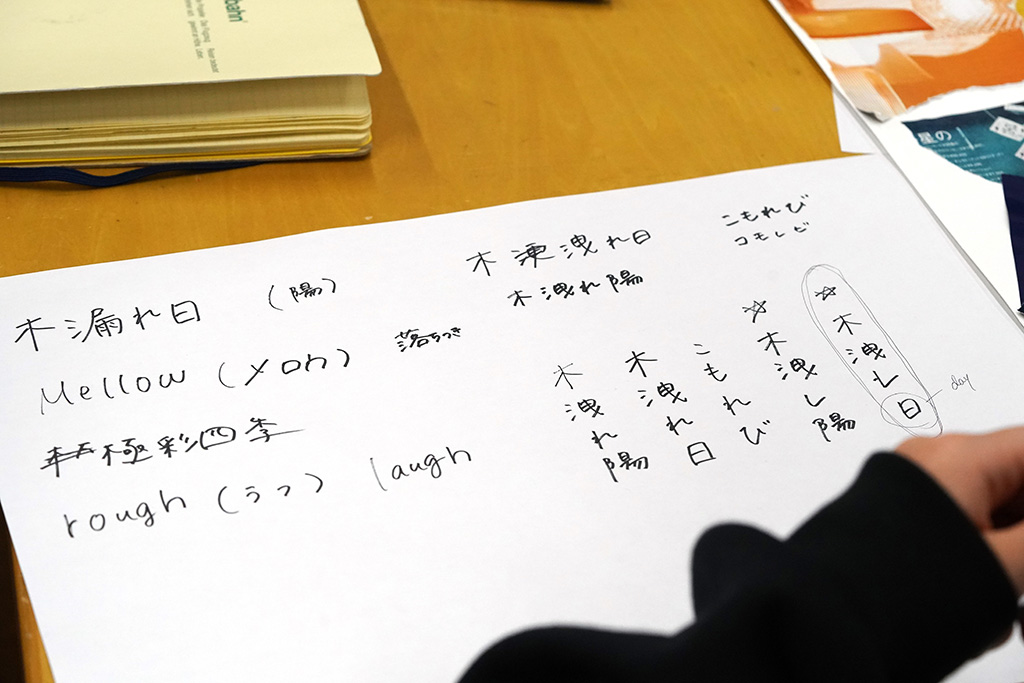 木漏れ日 (陽)
Mellow (メロウ)
落ちつき
極彩四季
rough (らフ) laugh
木洩れ日
木洩れ陽
こもれび
コモレビ
☆木洩レ日
day
☆木洩レ陽
こもれび
木洩れ日
木洩れ陽
星の